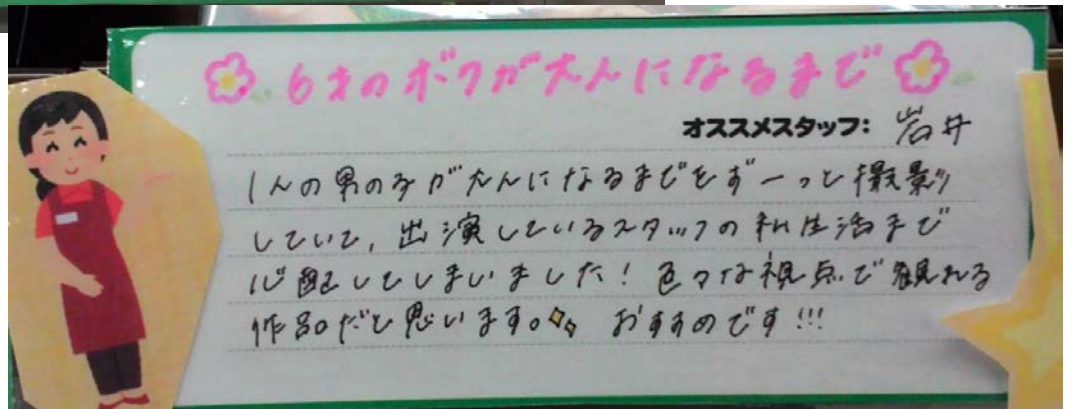 6才のボクが大人になるまで
オススメスタッフ: 岩井
1人の男の子が大人になるまでをずーっと撮影
していて、出演しているスタッフの私生活まで
心配してしまいました！色々な視点で観れる
作品だと思います。おすすめです!!!